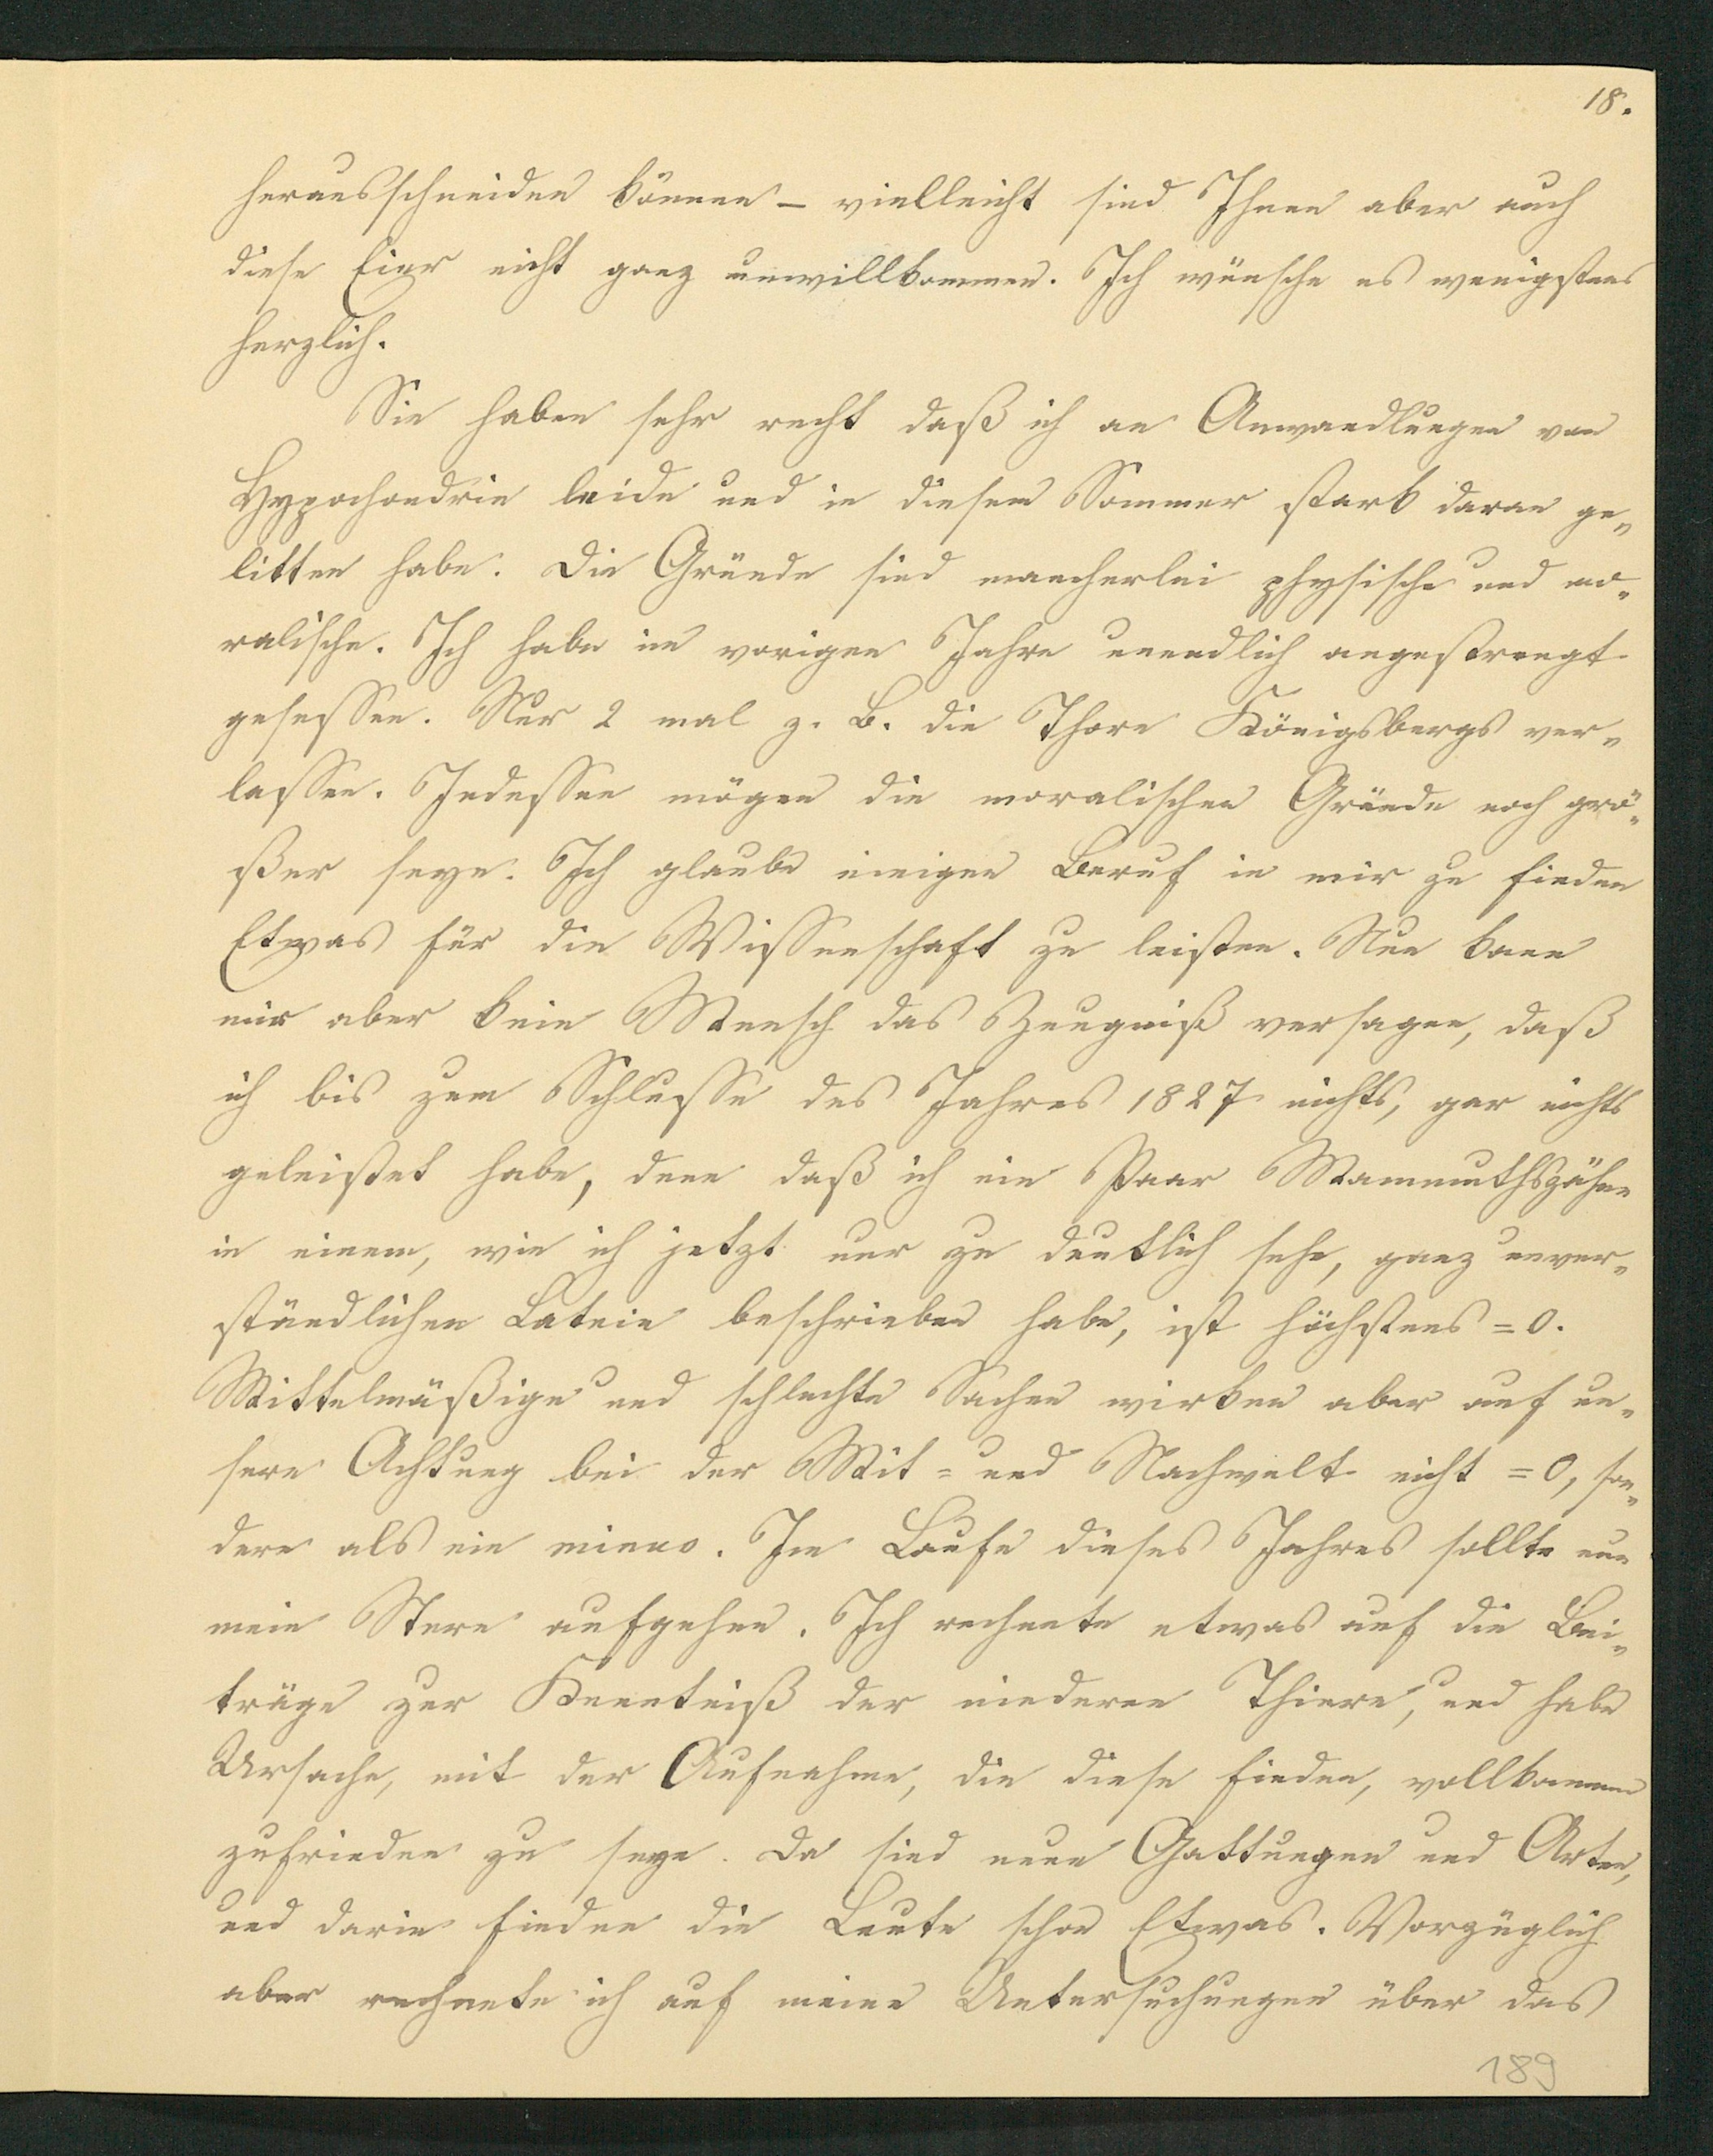 18.
herausschneiden können – vielleicht sind Ihnen aber auch
diese Eier nicht ganz unwillkommen. Ich wünsche es wenigstens
herzlich.
Sie haben sehr recht daß ich an Anwandlungen von
Hypochondrie leide und in diesem Sommer stark daran ge„
litten habe. Die Gründe sind mancherlei physische und mo„
ralische. Ich habe im vorigen Jahre unendlich angestrengt
gesessen. Nur 2 mal z. B. die Thore Königsbergs ver„
lassen. Indessen mögen die moralischen Gründe noch grö„
ßer seyn. Ich glaube einigen Beruf in mir zu finden
Etwas für die Wissenschaft zu leisten. Nun kann
mir aber kein Mensch das Zeugniß versagen, daß
ich bis zum Schlusse des Jahres 1827 nichts, gar nichts
geleistet habe, denn daß ich ein Paar Mammuthszähne
in einem, wie ich jetzt nur zu deutlich sehe, ganz unver„
ständlichen Latein beschrieben habe, ist höchstens = 0.
Mittelmäßige und schlechte Sachen wirken aber auf un„
sere Achtung bei der Mit = und Nachwelt nicht = 0, son„
dern als ein minus. Im Laufe dieses Jahres sollte nun
mein Stern aufgehen. Ich rechnete etwas auf die Bei„
träge zur Kenntniß der niederen Thiere, und habe
Ursache, mit der Aufnahme, die diese finden, vollkommen
zufrieden zu seyn. Da sind neue Gattungen und Arten,
und darin finden die Leute schon Etwas. Vorzüglich
aber rechnete ich auf meine Untersuchungen über das
189